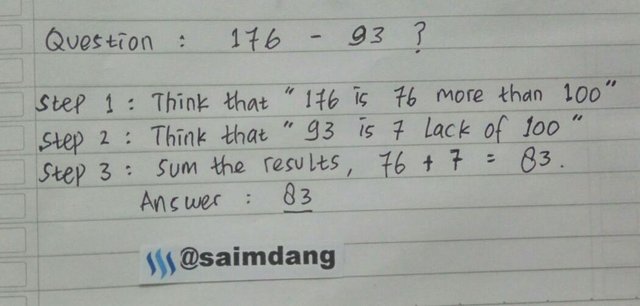 Question : 176 - 93 ?
Step 1 : Think that " 176 is 76 more than 100 "
Step 2 : Think that " 93 is 7 Lack of 100 "
Step 3 : Sum the results, 76 + 7 = 83.
Answer : 83
@saimdang